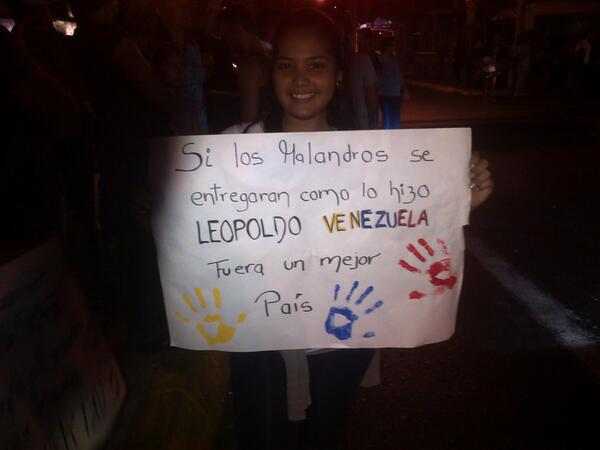 Si los Malandros se
entregaran como lo hizo
LEOPOLDO VENEZUELA
Fuera un mejor
País